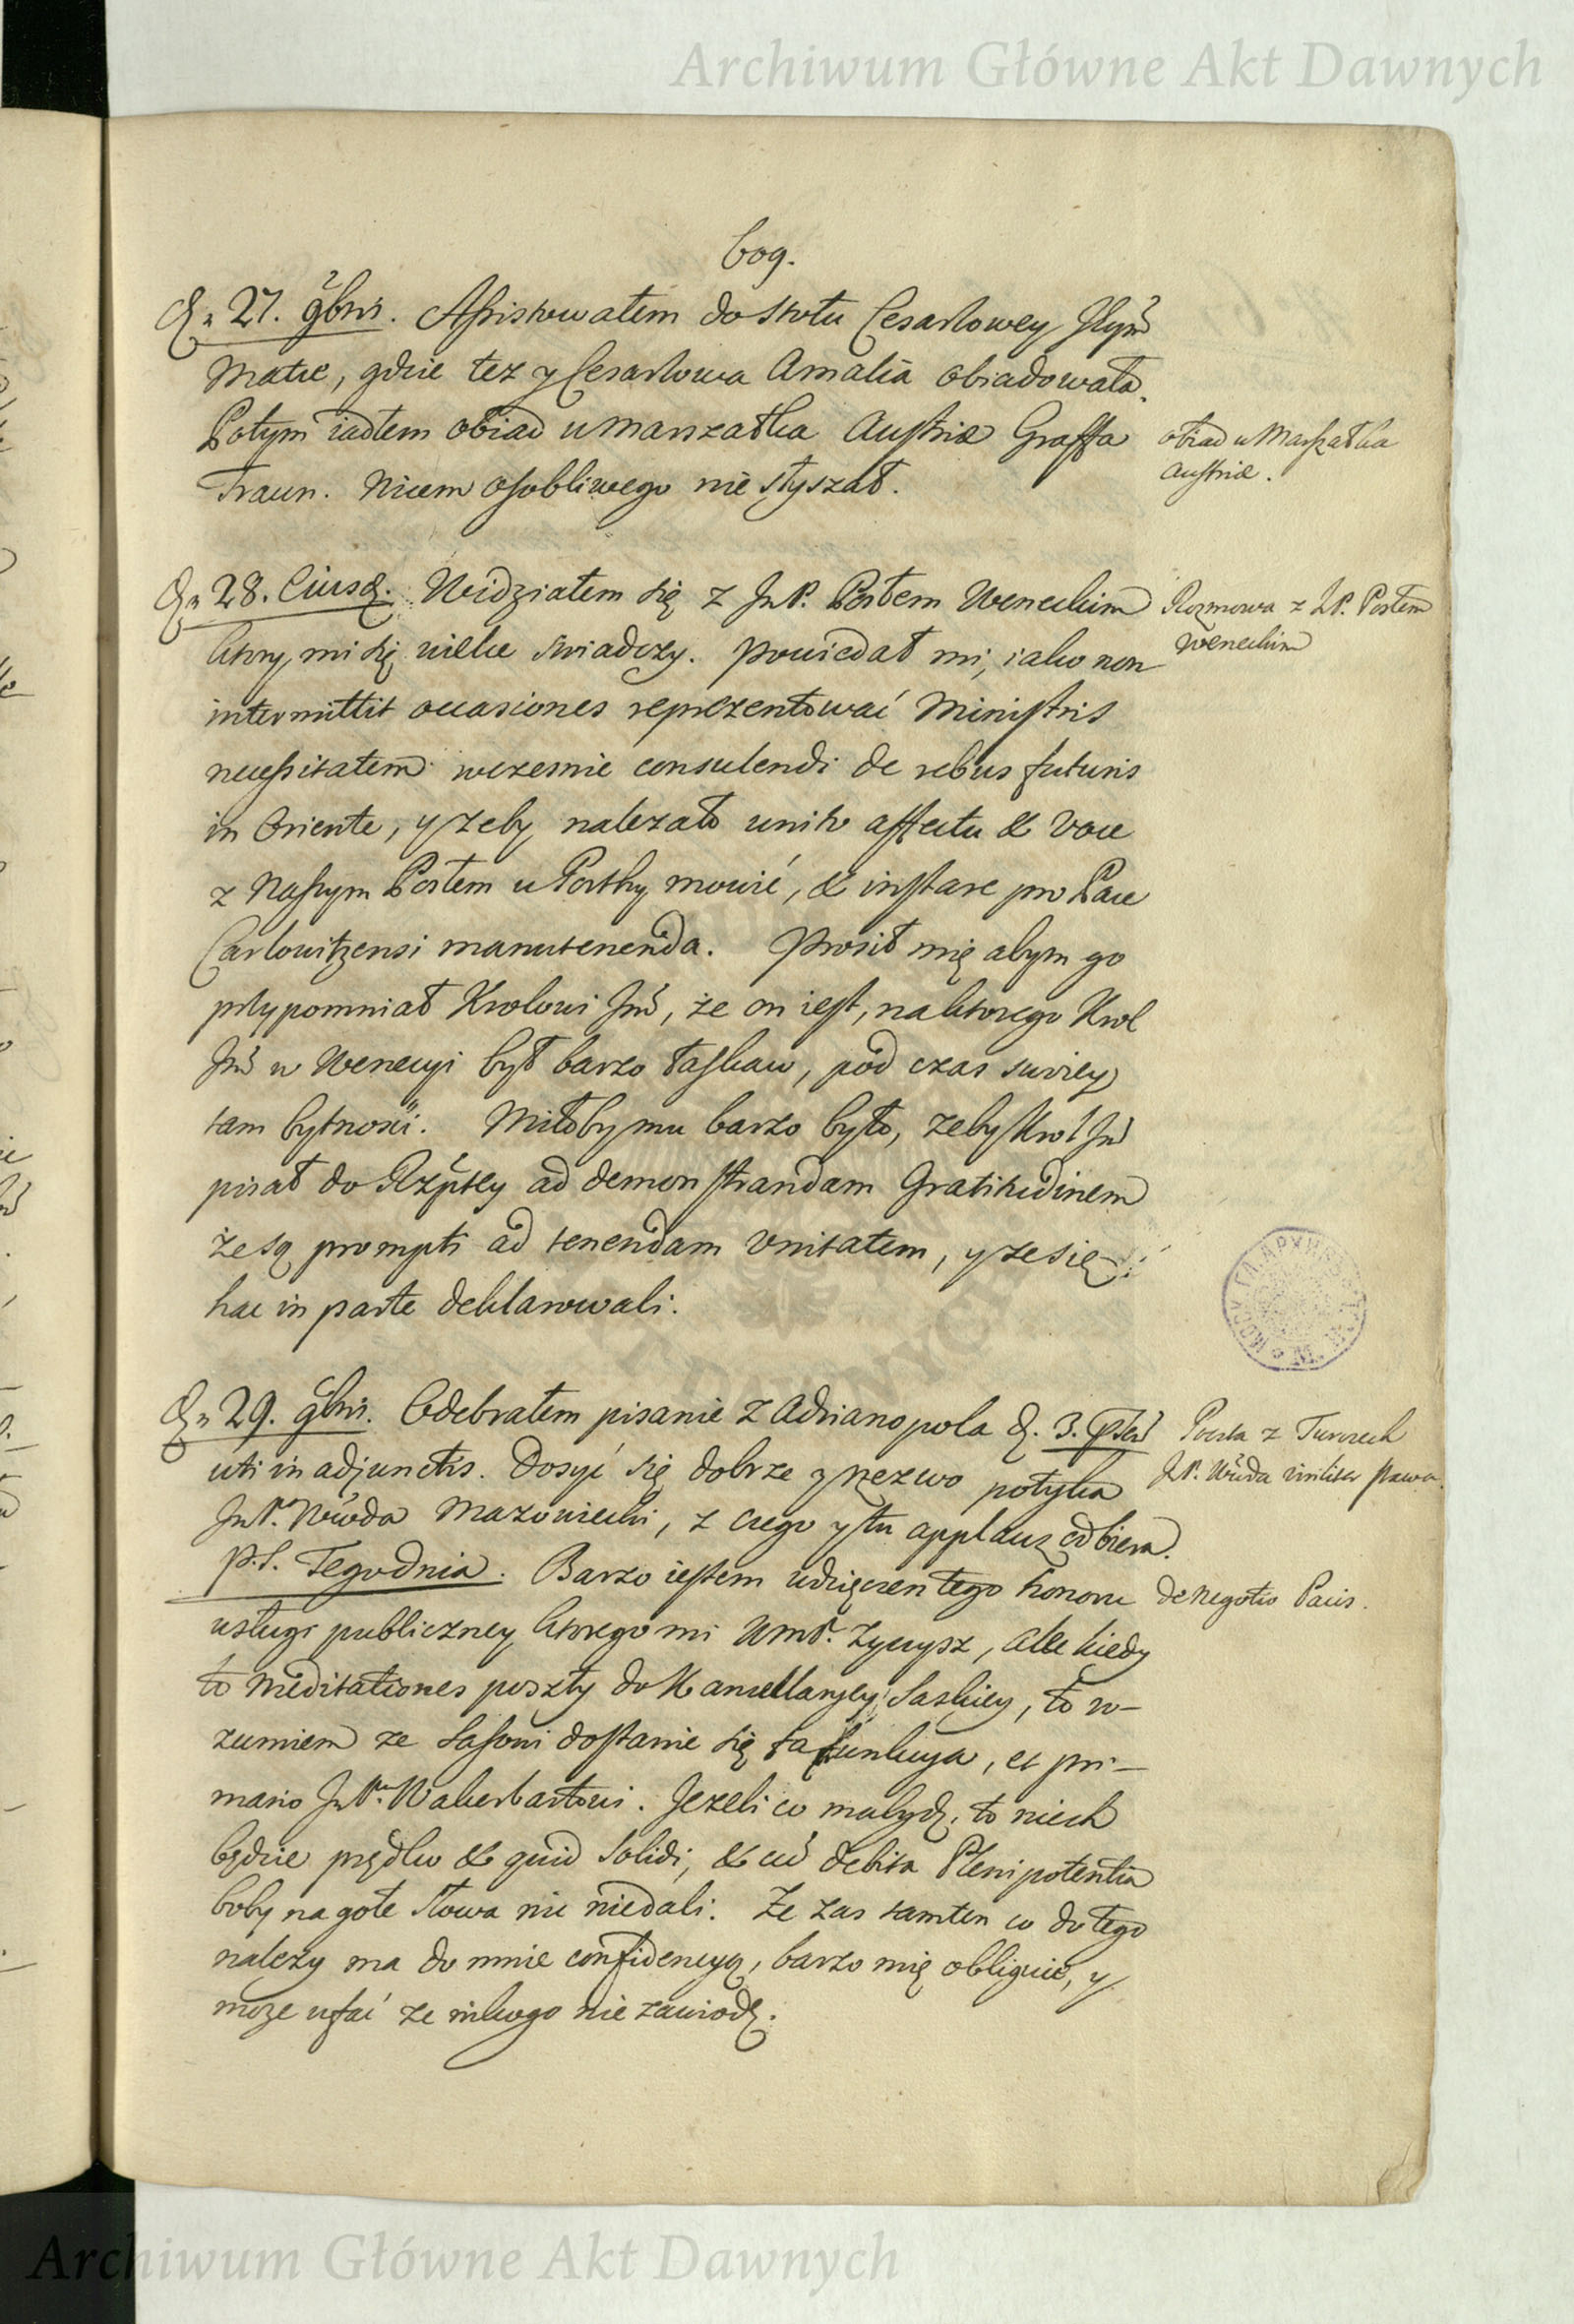 Archiwum Główne Akt Dawnych
609.
D. 27. 9bris. Assistowałem do stołu Cesarzowey Jeym̃
Matce, gdzie tez y Cesarzowa Amalia obiadowała.
Potym iadłem obiad u Marszałka Austriæ Graffa
obiad u Marszałka
Austriæ.
Traun. Nicem osobliwego nie słyszał.
D. 28. Eiusd. Widziałem się z JmP. Posłem Weneckim
Rozmowa z JP. Posłem
Weneckim
ktory mi się wielce swiadczy. powiedał mi, iako non
intermittit occasiones reprezentować Ministris
necessitatem wczesnie consulendi de rebus futuris
in Oriente, y zeby nalezało unito affectu & voce
z Naszym Posłem u Porthy mowić, & instare pro Pace
Carlovitzensi manutenenda. Prosił mię abym go
przypomniał Krolowi Jm̃, że on iest, na ktorego Krol
Jm̃ w Wenecyi był barzo łaskaw, pod czas swoiey
tam bytnosci. Miłoby mu barzo było, zeby Krol Jm̃
pisał do Rzptey ad demonstrandam Gratitudinem
że są prompti ad tenendam Unitatem, y ze się
hac in parte deklarowali.
D. 29. 9bris. Odebrałem pisanie z Adrianopola d. 3.
Poczta z Turczech
uti in adjunctis. Dosyć się dobrze y rzezwo potyka
JP. Wda viriliter stawa
JmP. Wwda Mazowiecki, z czego y tu applauz odbiera.
P.S. Tegodnia. Barzo iestem wdzięczen tego honoru
de negotio Pacis.
usługi publiczney ktorego mi WmP. zyczysz, ale kiedy
to meditationes poszły do Kancellaryey Saskiey, to ro-
zumiem ze Sasowi dostanie się ta funkcya, et pri-
mario JmPu Wakerbartowi. Jezeli co ma bydz, to niech
będzie prędko & quid solidi, & cum̃ debita Plenipotentia
boby na gołe słowa nic niedali. Ze zas tamten co do tego
nalezy ma do mnie confidencyą, barzo mię obliguie, y
moze ufać ze nikogo nie zawiodę.
Archiwum Główne Akt Dawnych